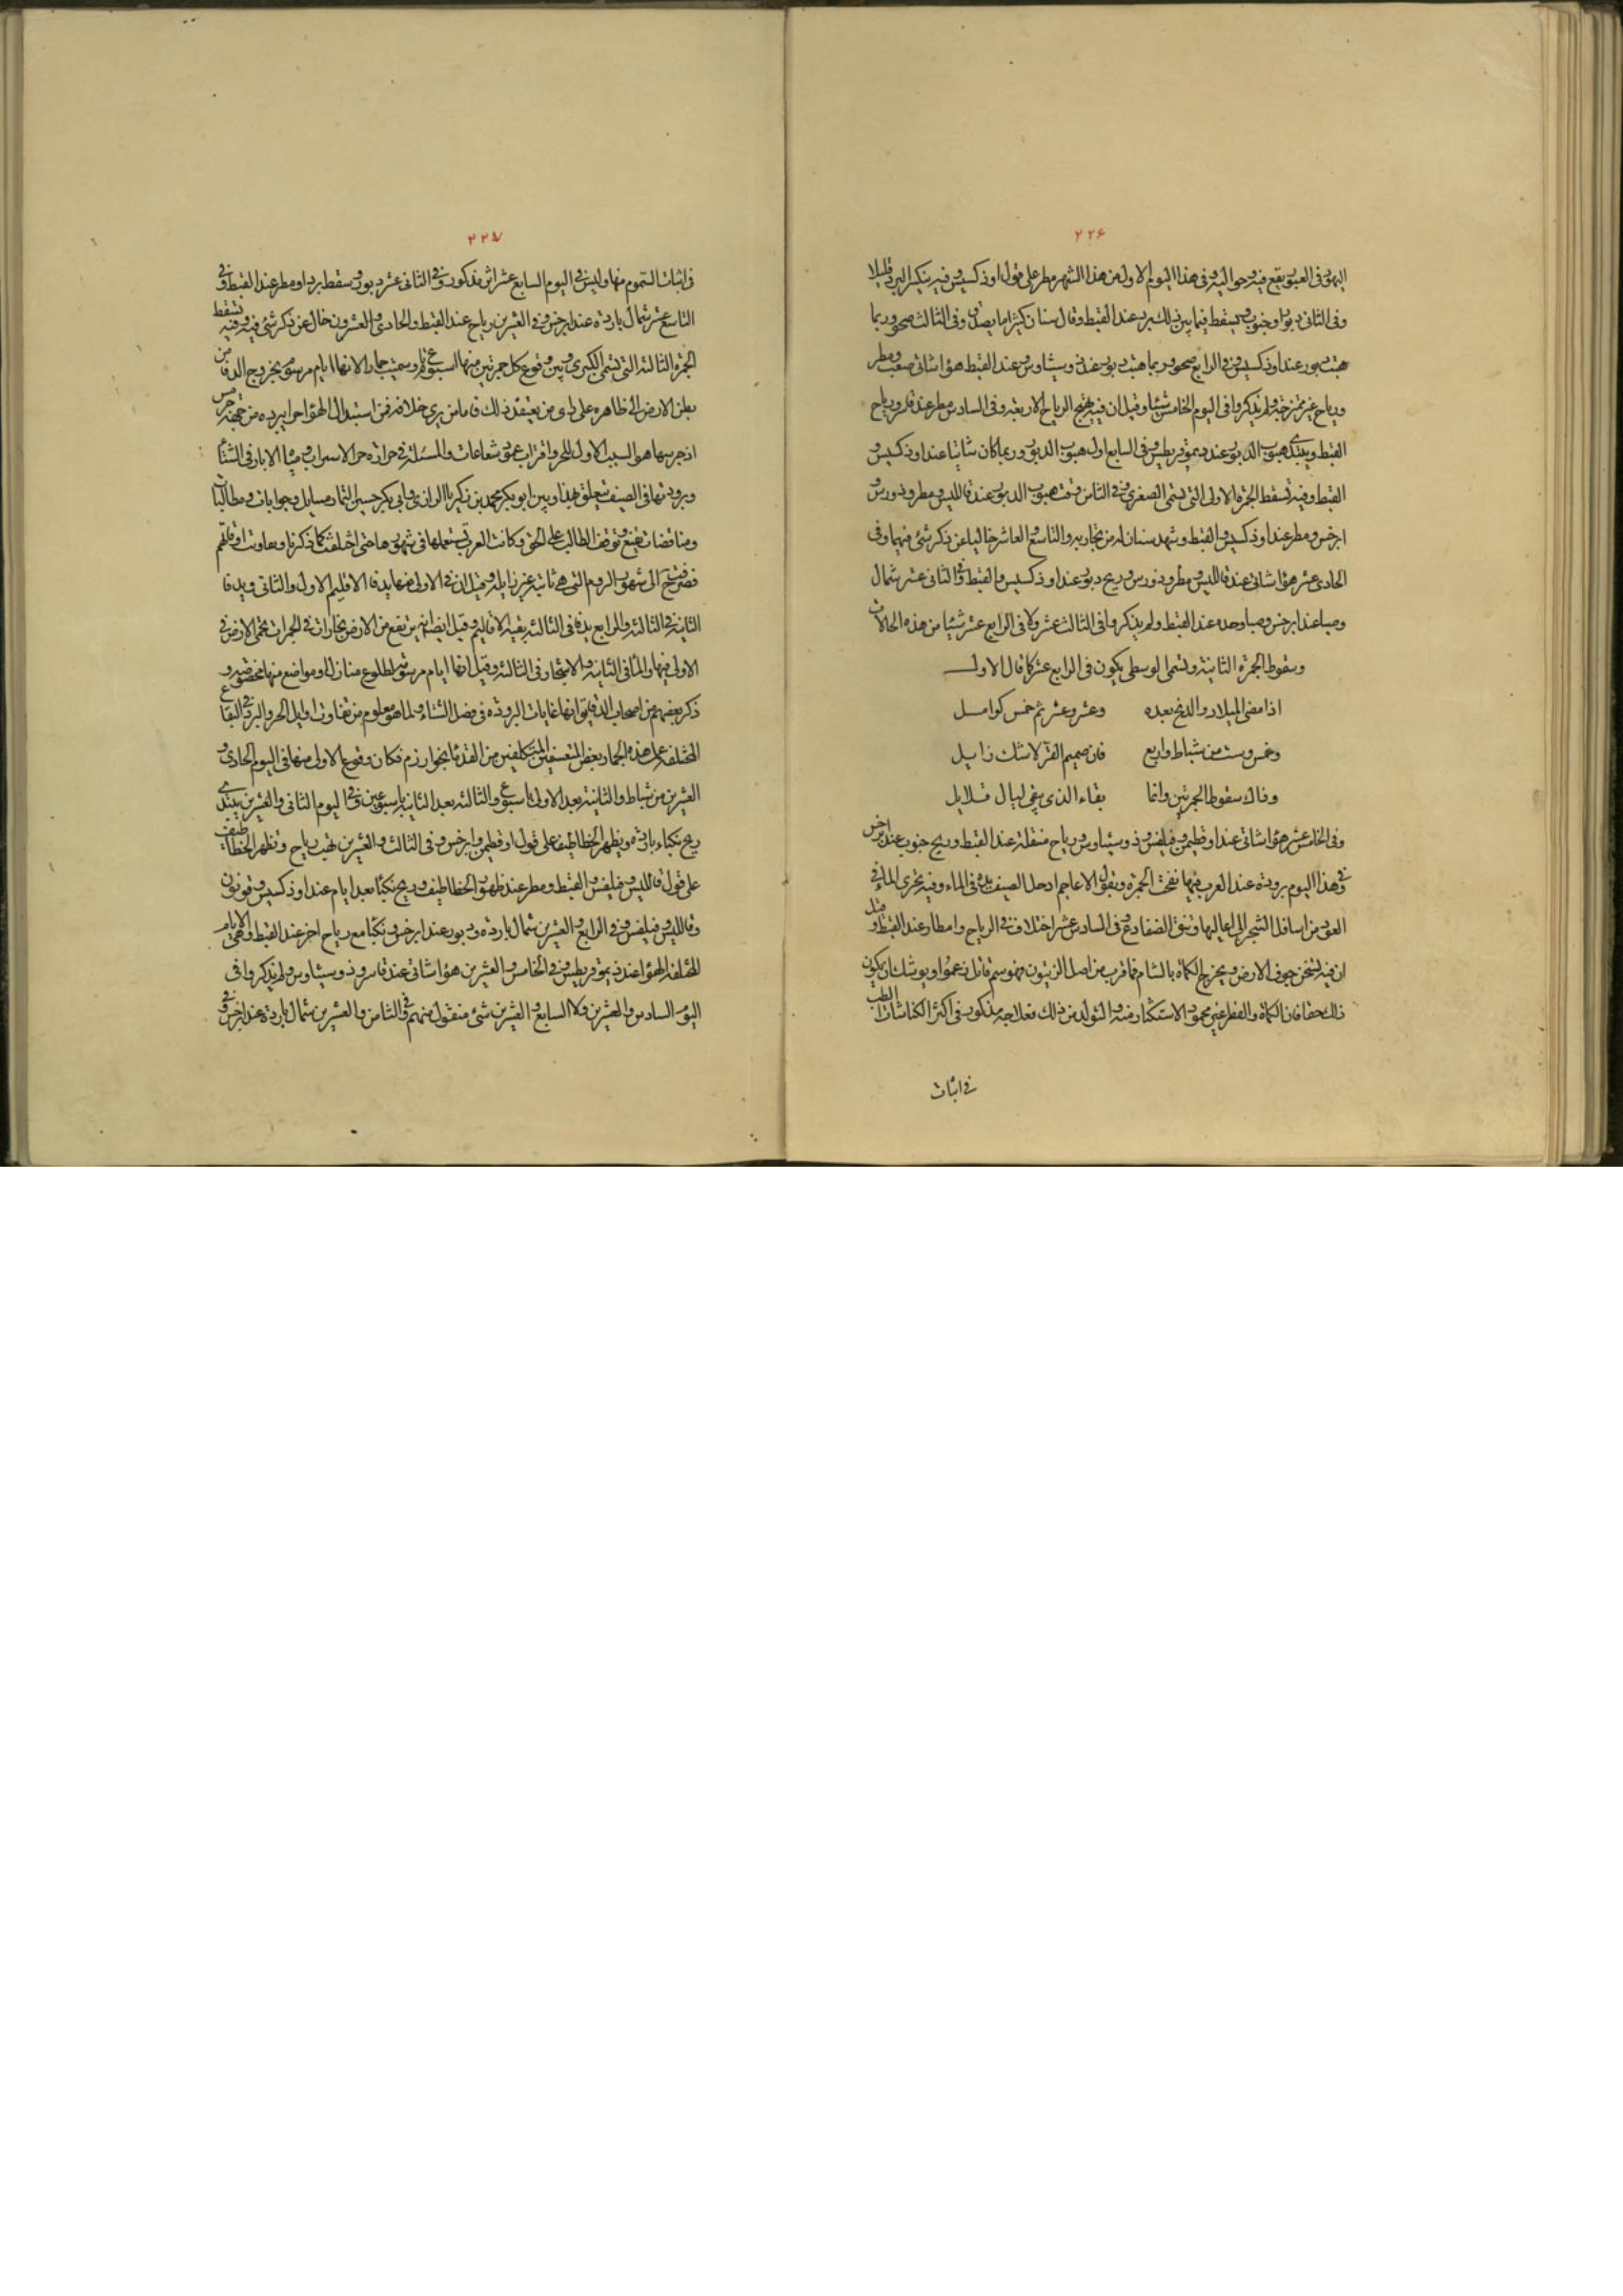 ٢٢۶
اليهود فى العبور يقع فيه وحواليه وفى هذا اليوم الاول من هذا الشهر مطر على قول اوذكسيس وفيه ينكسر البرد قليلا
وفى الثانى دبور او جنوب ويسقط فيما بين ذلك برد عند القبط وقال سنان كثيرا ما يصدق وفى الثالث صحو وربما
هبت دبور عند اوذكسيس وفى الرابع صحو وربما هبت دبور عند ذوسيثاوس وعند القبط هواء شاتى صعب ومطر
ورياح غير ممتزجة ولم يذكروا فى اليوم الخامس شيئا وقيل ان فيه تهيج الرياح الاربعة وفى السادس مطر عند قاسر ورياح
القبط ويبتدى هبوب الدبور عند ديموقريطس وفى السابع اول هبوب الدبور وربما كان شاتيا عند اوذكسيس و
القبط وفيه تسقط الجمرة الاولى التى تسمى الصغرى وفى الثامن وقت هبوب الدبور عند قالليس ومطروذورس و
ابرخس ومطر عند اوذكسيس والقبط وشهد سنان له من تجاربه والتاسع والعاشر خاليا عن ذكر شئ فيهما وفى
الحادى عشر هواء شاتى عند قالليس ومطروذورس وريح دبور عند اوذكسيس والقبط وفى الثانى عشر شمال
وصبا عند ابرخس وصبا وحده عند القبط ولم يذكروا فى الثالث عشر ولا فى الرابع عشر شيئا من هذه الحالات
وسقوط الجمرة الثانية وتسمى الوسطى يكون فى الرابع عشر كما قال الاول
اذا مضى الميلاد والدنح بعده وعشر وعشر ثم خمس كوامل
وخمس وست من شباط واربع فان صميم القر لا شك زايل
وذاك سقوط الجمرتين وانما بقاء الذى يبقى ليال قلايل
وفى الخامس عشر هواء شاتى عند اوقطيمن وفيلفس وذوسيثاوس ورياح منقلبة عند القبط وريح جنوب عند ابرخس
وفى هذا اليوم برودة عند العرب فيها نفخت الجمرة وتقول الاعاجم ادخل الصيف يده فى الماء وفيه يجرى الماء فى
العود من اسافل الشجر الى اعاليها وتنق الضفادع وفى السادس عشر اختلاف فى الرياح وامطار عند القبط وقيل
ان فيه يسخن جوف الارض ويخرج الكماة بالشام فما قرب من اصل الزيتون فهو سم قاتل زعموا ويوشك ان يكون
ذلك حقا فان الكماة والفطر غير محمود الاستكثار منه والمتولد من ذلك فعلاجه مذكور فى اكثر الكناشات الطب
فى اثبات
٢٢٧
فى اثبات السموم منها وليس فى اليوم السابع عشر اثر مذكور وفى الثانى عشر دبور وسقط برد او مطر عند القبط وفى
التاسع عشر شمال باردة عند ابرخس وفى العشرين رياح عند القبط والحادى والعشرون خال عن ذكر شئ فيه وفيه تسقط
الجمرة الثالثة التى تسمى الكبرى وبين وقوع كل جمرتين منها اسبوع تام وسميت جمارا لانها ايام مرسومة بخروج الدفا من
بطن الارض الى ظاهره على راى من يعتقد ذلك فاما من يرى خلافه فمن استبدال الهواء حرا ببرده من جهة جرم الشمس
اذ جرمها هو السبب الاول للحر واقتراب عمود شعاعات والمسئلة فى حرارة حر الاسراب ومياه الابار فى الشتاء
وبرودتها فى الصيف متعلق بهذا وبين ابو بكر محمد بن زكريا الرازى وابى بكر حسين التمار مسايل وجوابات ومطالبات
ومناقضات تقنع وتوقف الطالب على الحق وكانت العرب تستعملها فى شهورها حتى اختلفت كما ذكرنا وتفاوت اوقاتهم
فصرفت الى شهور الروم التى هى ثابتة غير زايلة وقيل ان فى الاولى منها يدفا الاقليم الاول والثانى ويدفا
الثانية فى الثالثة والرابع يدفا فى الثالثة بقية الاقاليم وقيل ايضا انه يرتفع من الارض بخارات فى الجمرات تحمى الارض فى
الاولى فيها والماء فى الثانية والاشجار فى الثالثة وقيل انها ايام مرسومة لطلوع منازل او مواضع منها مخصوصة و
ذكر بعضهم من اصحاب التدقيق انها غايات البرودة فى فصل الشتاء ولما هو معلوم من تفاوت اوايل الحر والبرد فى البقاع
المختلفة عمل هذه الجمار بعض المتعسفين المتكلفين من القدماء بخوارزم فكان وقوع الاولى منها فى اليوم الحادى و
العشرين من شباط والثانية بعد الاولى باسبوع والثالثة بعد الثانية باسبوعين وفى اليوم الثانى والعشرين يبتدى
ريح نكباء باردة ويظهر الخطاطيف على قول اوقطيمن وابرخس وفى الثالث والعشرين تهب رياح وتظهر الخطاطيف
على قول قالليس وفيلفس والقبط ومطر عند ظهور الخطاطيف وريح نكباء بعد ايام عند اوذكسيس وقونون
وقالليس وفيلفس وفى الرابع والعشرين شمال باردة ودبور عند ابرخس ونكباء مع رياح اخر عند القبط وهى الايام
المختلفة الهواء عند ديموقريطس وفى الخامس والعشرين هواء شاتى عند قاسر وذوسيثاوس ولم يذكروا فى
اليوم السادس والعشرين ولا السابع والعشرين شئ منقول منهم وفى الثامن والعشرين شمال باردة عند ابرخس وفى